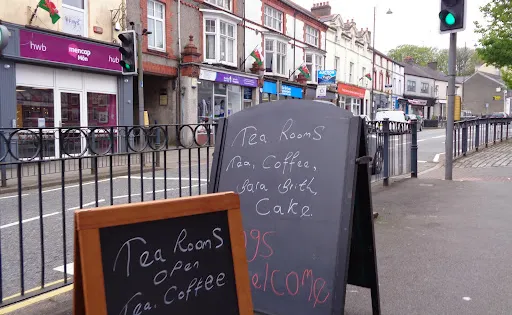 hwb
hub
mencap
Môn
Tea Rooms
Tea, Coffee,
Bara Brith
Cake
gs
elcome
Tea Rooms
Open
Tea, Coffee